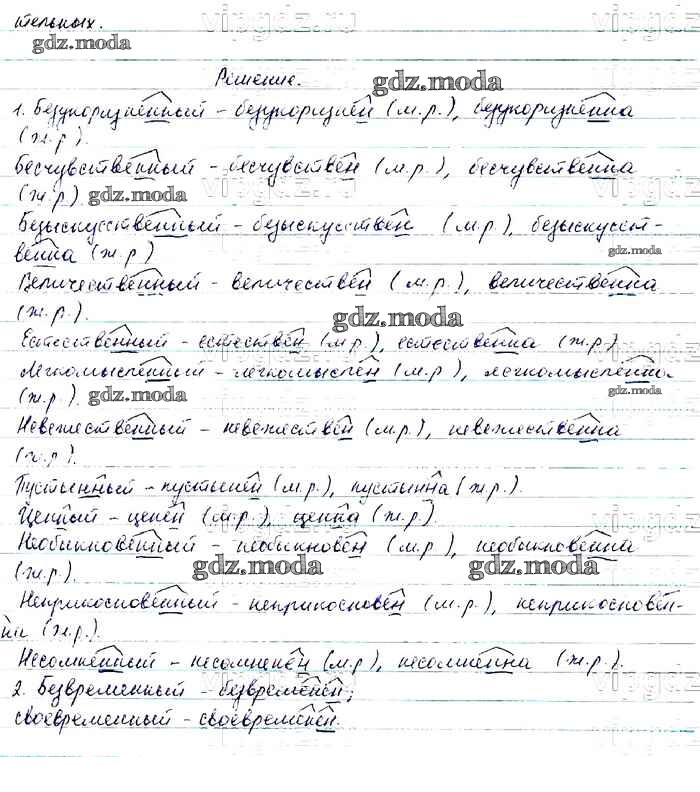 тельных.
vipgdz.ru
gdz.moda
Решение.
gdz.moda
1. Безукоризненный - безукоризнен (м.р.), безукоризненна
(ж.р).
Бесчувственный - бесчувствен (м.р.), бесчувственна
(ж.р) gdz.moda vipgdz.ru
Безыскусственный - безыскусствен (м.р.), безыскусст-
венна (ж.р) gdz.moda
Величественный - величествен (м.р.), величественна
(ж.р.). gdz.moda
Естественный - естествен (м.р.), естественна (ж.р)
Легкомысленный - легкомыслен (м.р), легкомысленна
(ж.р). gdz.moda gdz.moda
Невежественный - невежествен (м.р.), невежественна
(ж.р).
Пустынный - пустынен (м.р.), пустынна (ж.р.).
Ценный - ценен (м.р.), ценна (ж.р).
Необыкновенный - необыкновен (м.р.), необыкновенна
(ж.р.). gdz.moda gdz.moda
Неприкосновенный - неприкосновен (м.р.), неприкосновен-
на (ж.р.).
Несомненный - несомненен (м.р), несомненна (ж.р.).
2. Безвременный - безвременен;
своевременный - своевременен.
vipgdz.ru